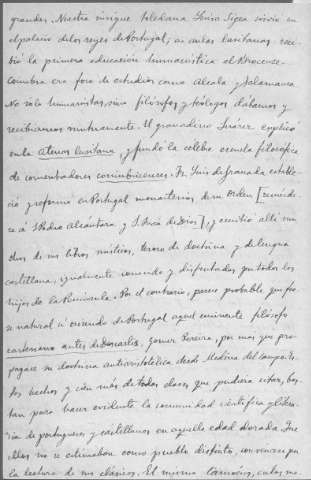 grandes. Nuestra insigne toledana Luisa Sigea vivió en
el palacio de los reyes de Portugal; en aulas lusitanas reci-
bió la primera educación humanística el Brocense.
Coimbra era foco de estudios como Alcalá y Salamanca.
No sólo humanistas, sino filósofos y teólogos dábamos y
recibíamos mutuamente. El granadino Suárez explicó
en la Atenas lusitana, y fundó la célebre escuela filosófica
de comentadores conimbricenses. Fr. Luis de Granada estable-
ció y reformó en Portugal monasterios de su Orden [recuérde-
se a S. Pedro Alcántara y S. Juan de Dios], y escribió allí mu-
chos de sus libros místicos, tesoro de doctrina y de lengua
castellana, igualmente conocidos y disfrutados por todos los
hijos de la Península. Por el contrario, parece probable que fue-
se natural u oriundo de Portugal aquel eminente filósofo
cartesiano antes de Descartes, Gómez Pereira, por más que pro-
pagase su doctrina antiaristotélica desde Medina del Campo. Es-
tos hechos y cien más de todas clases que pudiera citar, bas-
tan para hacer evidente la comunidad científica y litera-
ria de portugueses y castellanos en aquella edad dorada. Que
ellos no se estimaban como pueblo distinto, convéncese por
la lectura de sus clásicos. El mismo Camoens, cutas me-